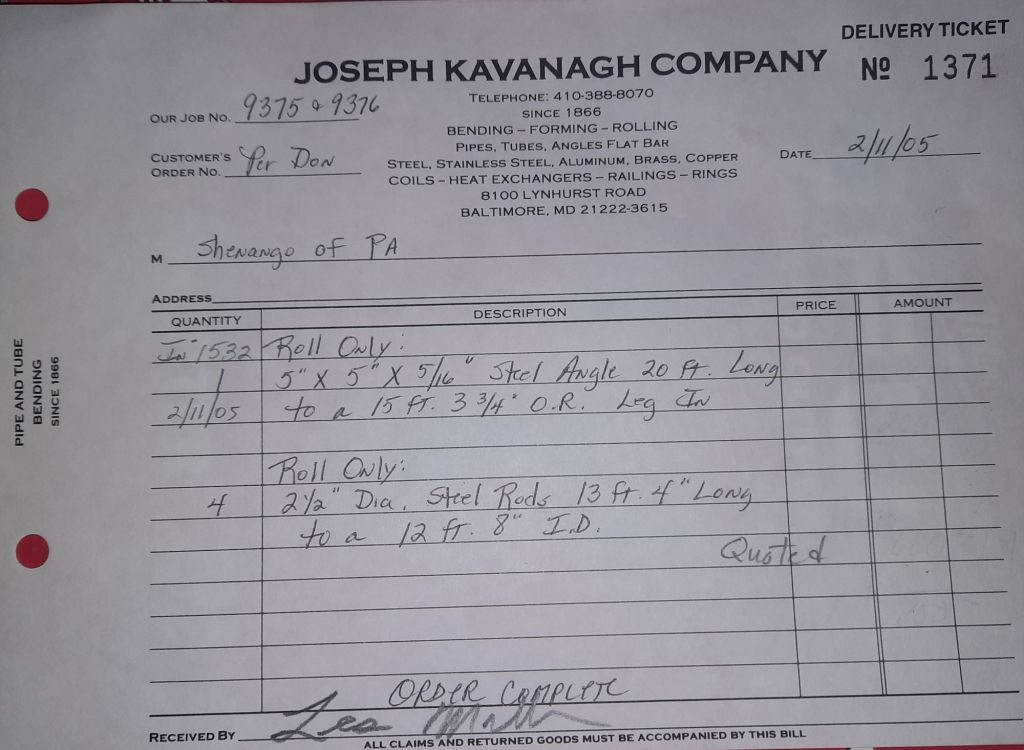 DELIVERY TICKET
JOSEPH KAVANAGH COMPANY
Nº 1371
TELEPHONE: 410-388-8070
SINCE 1866
BENDING – FORMING – ROLLING
PIPES, TUBES, ANGLES FLAT BAR
STEEL, STAINLESS STEEL, ALUMINUM, BRASS, COPPER
COILS – HEAT EXCHANGERS – RAILINGS – RINGS
8100 LYNHURST ROAD
BALTIMORE, MD 21222-3615
OUR JOB NO. 9375 & 9376
CUSTOMER'S ORDER NO. Per Don
DATE 2/11/05
M Shenango of PA
ADDRESS
QUANTITY DESCRIPTION PRICE AMOUNT
In 1532 Roll Only:
1 5" X 5" X 5/16" Steel Angle 20 ft. Long
2/11/05 to a 15 ft. 3 3/4" O.R. Leg In
Roll Only:
4 2 1/2" Dia. Steel Rods 13 ft. 4" Long
to a 12 ft. 8" I.D.
Quoted
ORDER COMPLETE
RECEIVED BY Les
ALL CLAIMS AND RETURNED GOODS MUST BE ACCOMPANIED BY THIS BILL
PIPE AND TUBE
BENDING
SINCE 1866